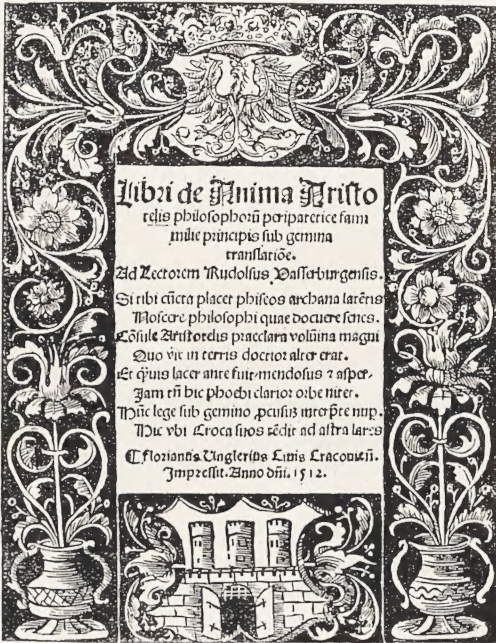 Libri de Anima Aristo
telis philosophorū peripatetice fami
milie principis sub gemina
translatiōe.
Ad Lectorem Rudolfus Vasserburgensis.
Si tibi cūcta placet phisicos archana latētis
Noscere philosophi quae docuere senes.
Cōsule Aristotelis praeclara volūina magni
Quo vir in terris doctior alter erat.
Et q̄uis lacer ante fuit mendosus ⁊ asper.
Jam tñ hic phoebi clarior orbe nitet.
Hūc lege sub gemino ꝓcusus interp̄te nup.
Hic vbi Croca suos tēdit ad astra lares
Florianus Unglerius Ciuis Cracouieñ.
Impressit. Anno dñi. 1512.